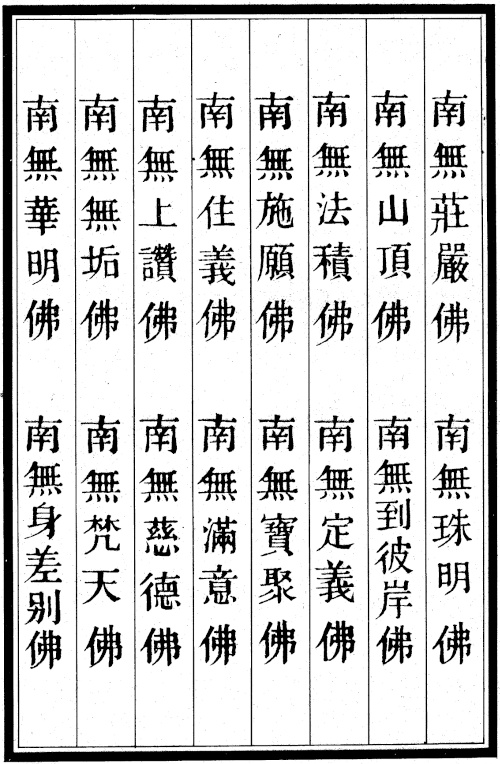 南無莊嚴佛 南無珠明佛
南無山頂佛 南無到彼岸佛
南無法積佛 南無定義佛
南無施願佛 南無寶聚佛
南無住義佛 南無滿意佛
南無上讚佛 南無慈德佛
南無無垢佛 南無梵天佛
南無華明佛 南無身差別佛